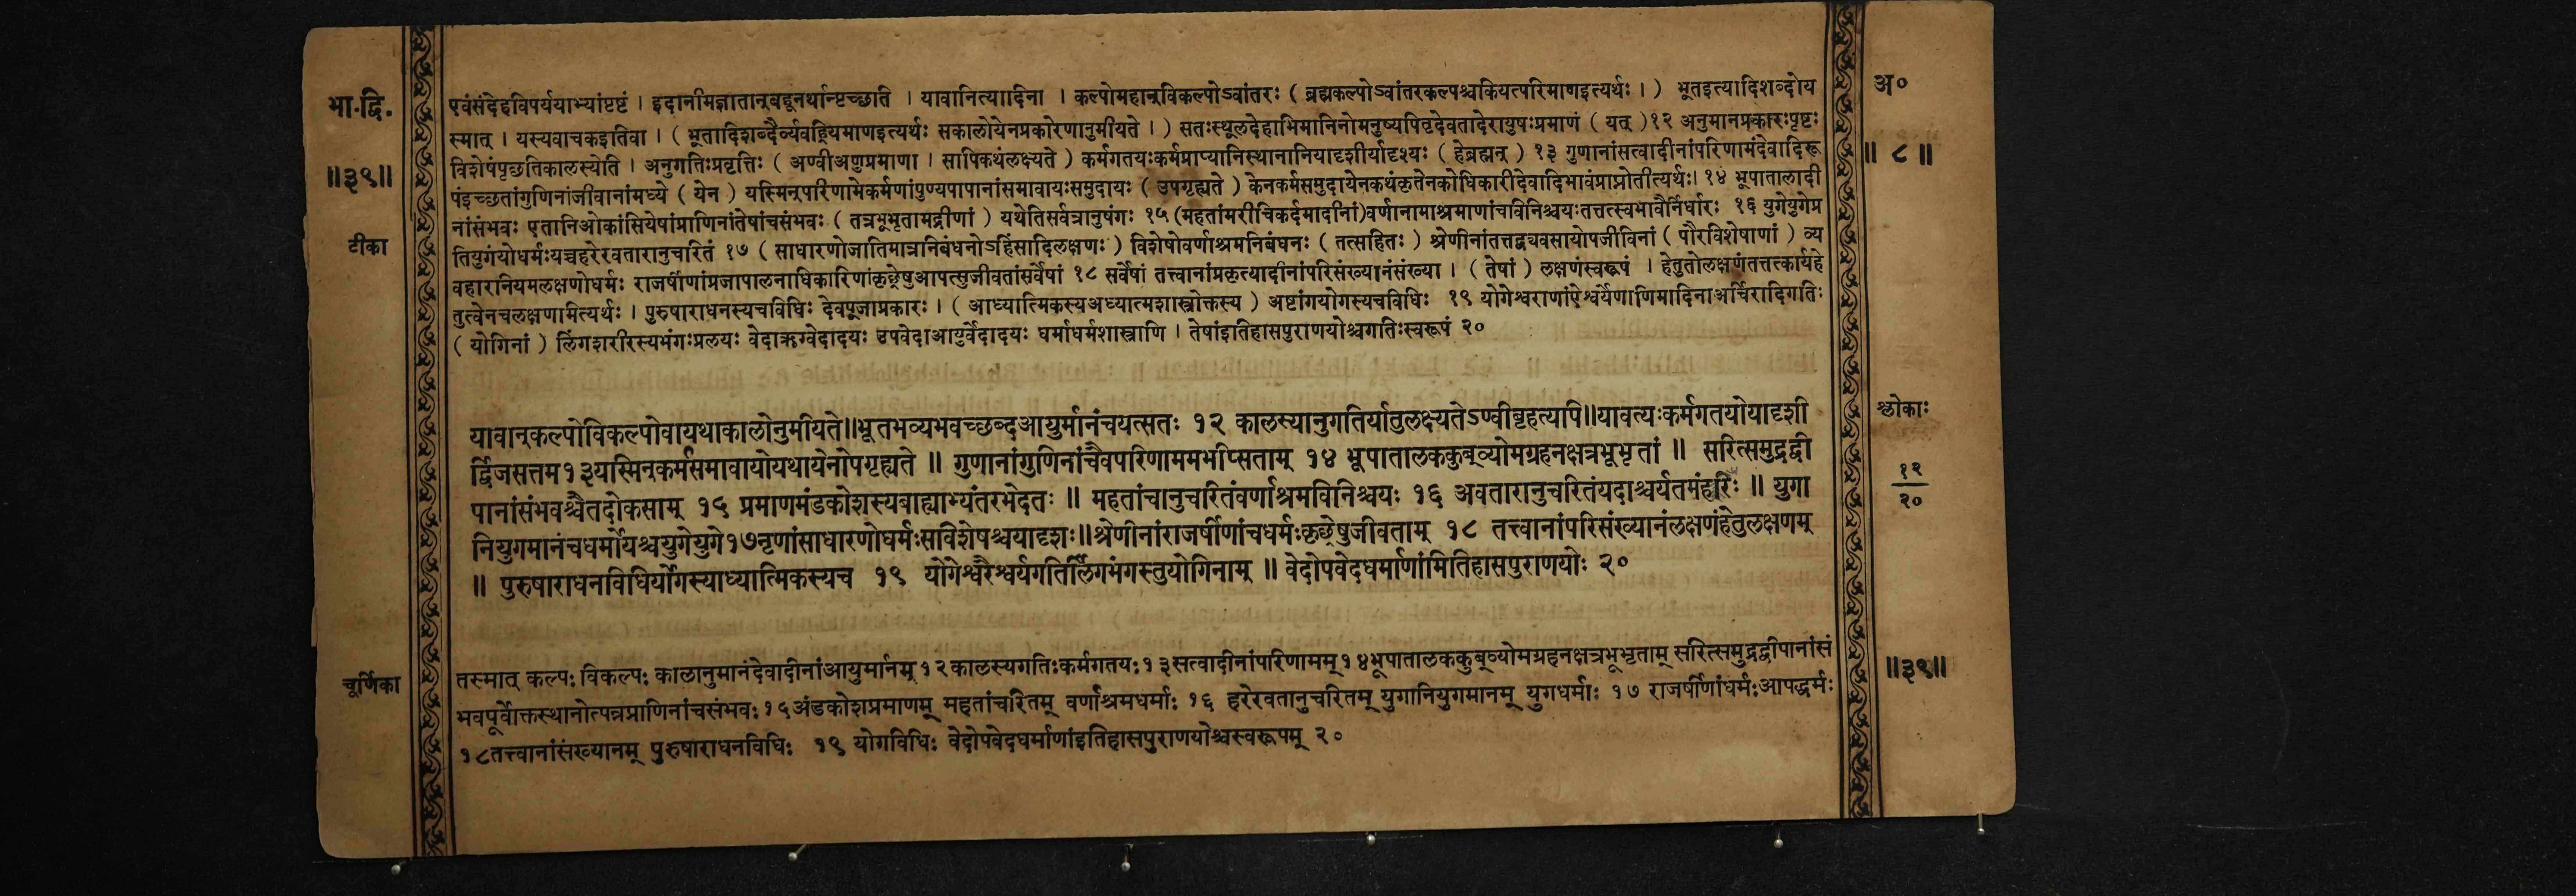 भा.द्वि.
॥३९॥
टीका
एवंसंदेहविपर्ययाभ्यांपृष्टं । इदानीमज्ञातान्बहूनर्थान्पृच्छति । यावानित्यादिना । कल्पोमहान्विकल्पोऽवांतरः ( ब्रह्मकल्पोऽवांतरकल्पश्चकियत्परिमाणइत्यर्थः । ) भूतइत्यादिशब्दोय
स्मात् । यस्यवाचकइतिवा । ( भूतादिशब्दैर्व्यवह्रियमाणइत्यर्थः सकालोयेनप्रकारेणानुमीयते । ) सतःस्थूलदेहाभिमानिनोमनुष्यपितृदेवतादेरायुषःप्रमाणं ( यत् )१२ अनुमानप्रकारःपृष्टः
विशेषंपृछतिकालस्येति । अनुगतिःप्रवृत्तिः ( अण्वीअणुप्रमाणा । सापिकथंलक्ष्यते ) कर्मगतयःकर्मप्राप्यानिस्थानानियादृशीर्यादृश्यः ( हेब्रह्मन् ) १३ गुणानांसत्वादीनांपरिणामंदेवादिरू
पंइच्छतांगुणिनांजीवानांमध्ये ( येन ) यस्मिन्परिणामेकर्मणांपुण्यपापानांसमावायःसमुदायः ( उपगृह्यते ) केनकर्मसमुदायेनकथंकृतेनकोधिकारीदेवादिभावंप्राप्नोतीत्यर्थः। १४ भूपातालादी
नांसंभवः एतानिओकांसियेषांप्राणिनांतेषांचसंभवः ( तत्रभूभृतामद्रीणां ) यथेतिसर्वत्रानुषंगः १५ (महतांमरीचिकर्दमादीनां)वर्णानामाश्रमाणांचविनिश्चयःतत्तत्स्वभावैर्निर्धारः १६ युगेयुगेप्र
तियुगंयोधर्मःयच्चहरेरवतारानुचरितं १७ ( साधारणोजातिमात्रानिबंधनोऽहिंसादिलक्षणः ) विशेषोवर्णाश्रमनिबंधनः ( तत्सहितः ) श्रेणीनांतत्तद्व्यवसायोपजीविनां ( पौरविशेषाणां ) व्य
वहारनियमलक्षणोधर्मः राजर्षीणांप्रजापालनाधिकारिणांकृछ्रेषुआपत्सुजीवतांसर्वेषां १८ सर्वेषां तत्त्वानांप्रकृत्यादीनांपरिसंख्यानंसंख्या । ( तेषां ) लक्षणंस्वरूपं । हेतुतोलक्षणंतत्तत्कार्यहे
तुत्वेनचलक्षणामित्यर्थः । पुरुषाराधनस्यचविधिः देवपूजाप्रकारः । ( आध्यात्मिकस्यअध्यात्मशास्त्रोक्तस्य ) अष्टांगयोगस्यचविधिः १९ योगेश्वराणांऐश्वर्येणाणिमादिनाअर्चिरादिगतिः
( योगिनां ) लिंगशरीरस्यभंगःप्रलयः वेदाऋग्वेदादयः उपवेदाआयुर्वेदादयः धर्माधर्मशास्त्राणि । तेषांइतिहासपुराणयोश्चगतिःस्वरूपं २०
यावान्कल्पोविकल्पोवायथाकालोनुमीयते॥भूतभव्यभवच्छब्दआयुर्मानंचयत्सतः १२ कालस्यानुगतिर्यातुलक्ष्यतेऽण्वीबृहत्यापि॥यावत्यःकर्मगतयोयादृशी
र्द्विजसत्तम१३यस्मिन्कर्मसमावायोयथायेनोपगृह्यते ॥ गुणानांगुणिनांचैवपरिणाममभीप्सताम् १४ भूपातालककुब्व्योमग्रहनक्षत्रभूभृतां ॥ सरित्समुद्रद्वी
पानांसंभवश्चैतदोकसाम् १५ प्रमाणमंडकोशस्यबाह्याभ्यंतरभेदतः ॥ महतांचानुचरितंवर्णाश्रमविनिश्चयः १६ अवतारानुचरितंयदाश्चर्यतमंहरिः ॥ युगा
नियुगमानंचधर्मोयश्चयुगेयुगे१७नृणांसाधारणोधर्मःसविशेषश्चयादृशः॥श्रेणीनांराजर्षीणांचधर्मःकृछ्रेषुजीवताम् १८ तत्त्वानांपरिसंख्यानंलक्षणंहेतुलक्षणम्
॥ पुरुषाराधनविधिर्योगस्याध्यात्मिकस्यच १९ योगेश्वरैश्वर्यगतिर्लिंगभंगस्तुयोगिनाम् ॥ वेदोपवेदधर्माणांमितिहासपुराणयोः २०
चूर्णिका
तस्मात् कल्पः विकल्पः कालानुमानंदेवादीनांआयुमानम् १२ कालस्यगतिःकर्मगतयः१३सत्वादीनांपरिणामम्१४भूपातालककुब्व्योमग्रहनक्षत्रभूभृताम् सरित्समुद्रद्वीपानांसं
भवपूर्वोक्तस्थानोत्पन्नप्राणिनांचसंभवः१५अंडकोशप्रमाणम् महतांचरितम् वर्णाश्रमधर्माः १६ हरेरवतानुचरितम् युगानियुगमानम् युगधर्माः १७ राजर्षीणांधर्मःआपद्धर्मः
१८तत्त्वानांसंख्यानम् पुरुषाराधनविधिः १९ योगविधिः वेदोपवेदधर्माणांइतिहासपुराणयोश्चस्वरूपम् २०
अ०
॥ ८ ॥
श्लोकाः
१२
२०
॥३९॥